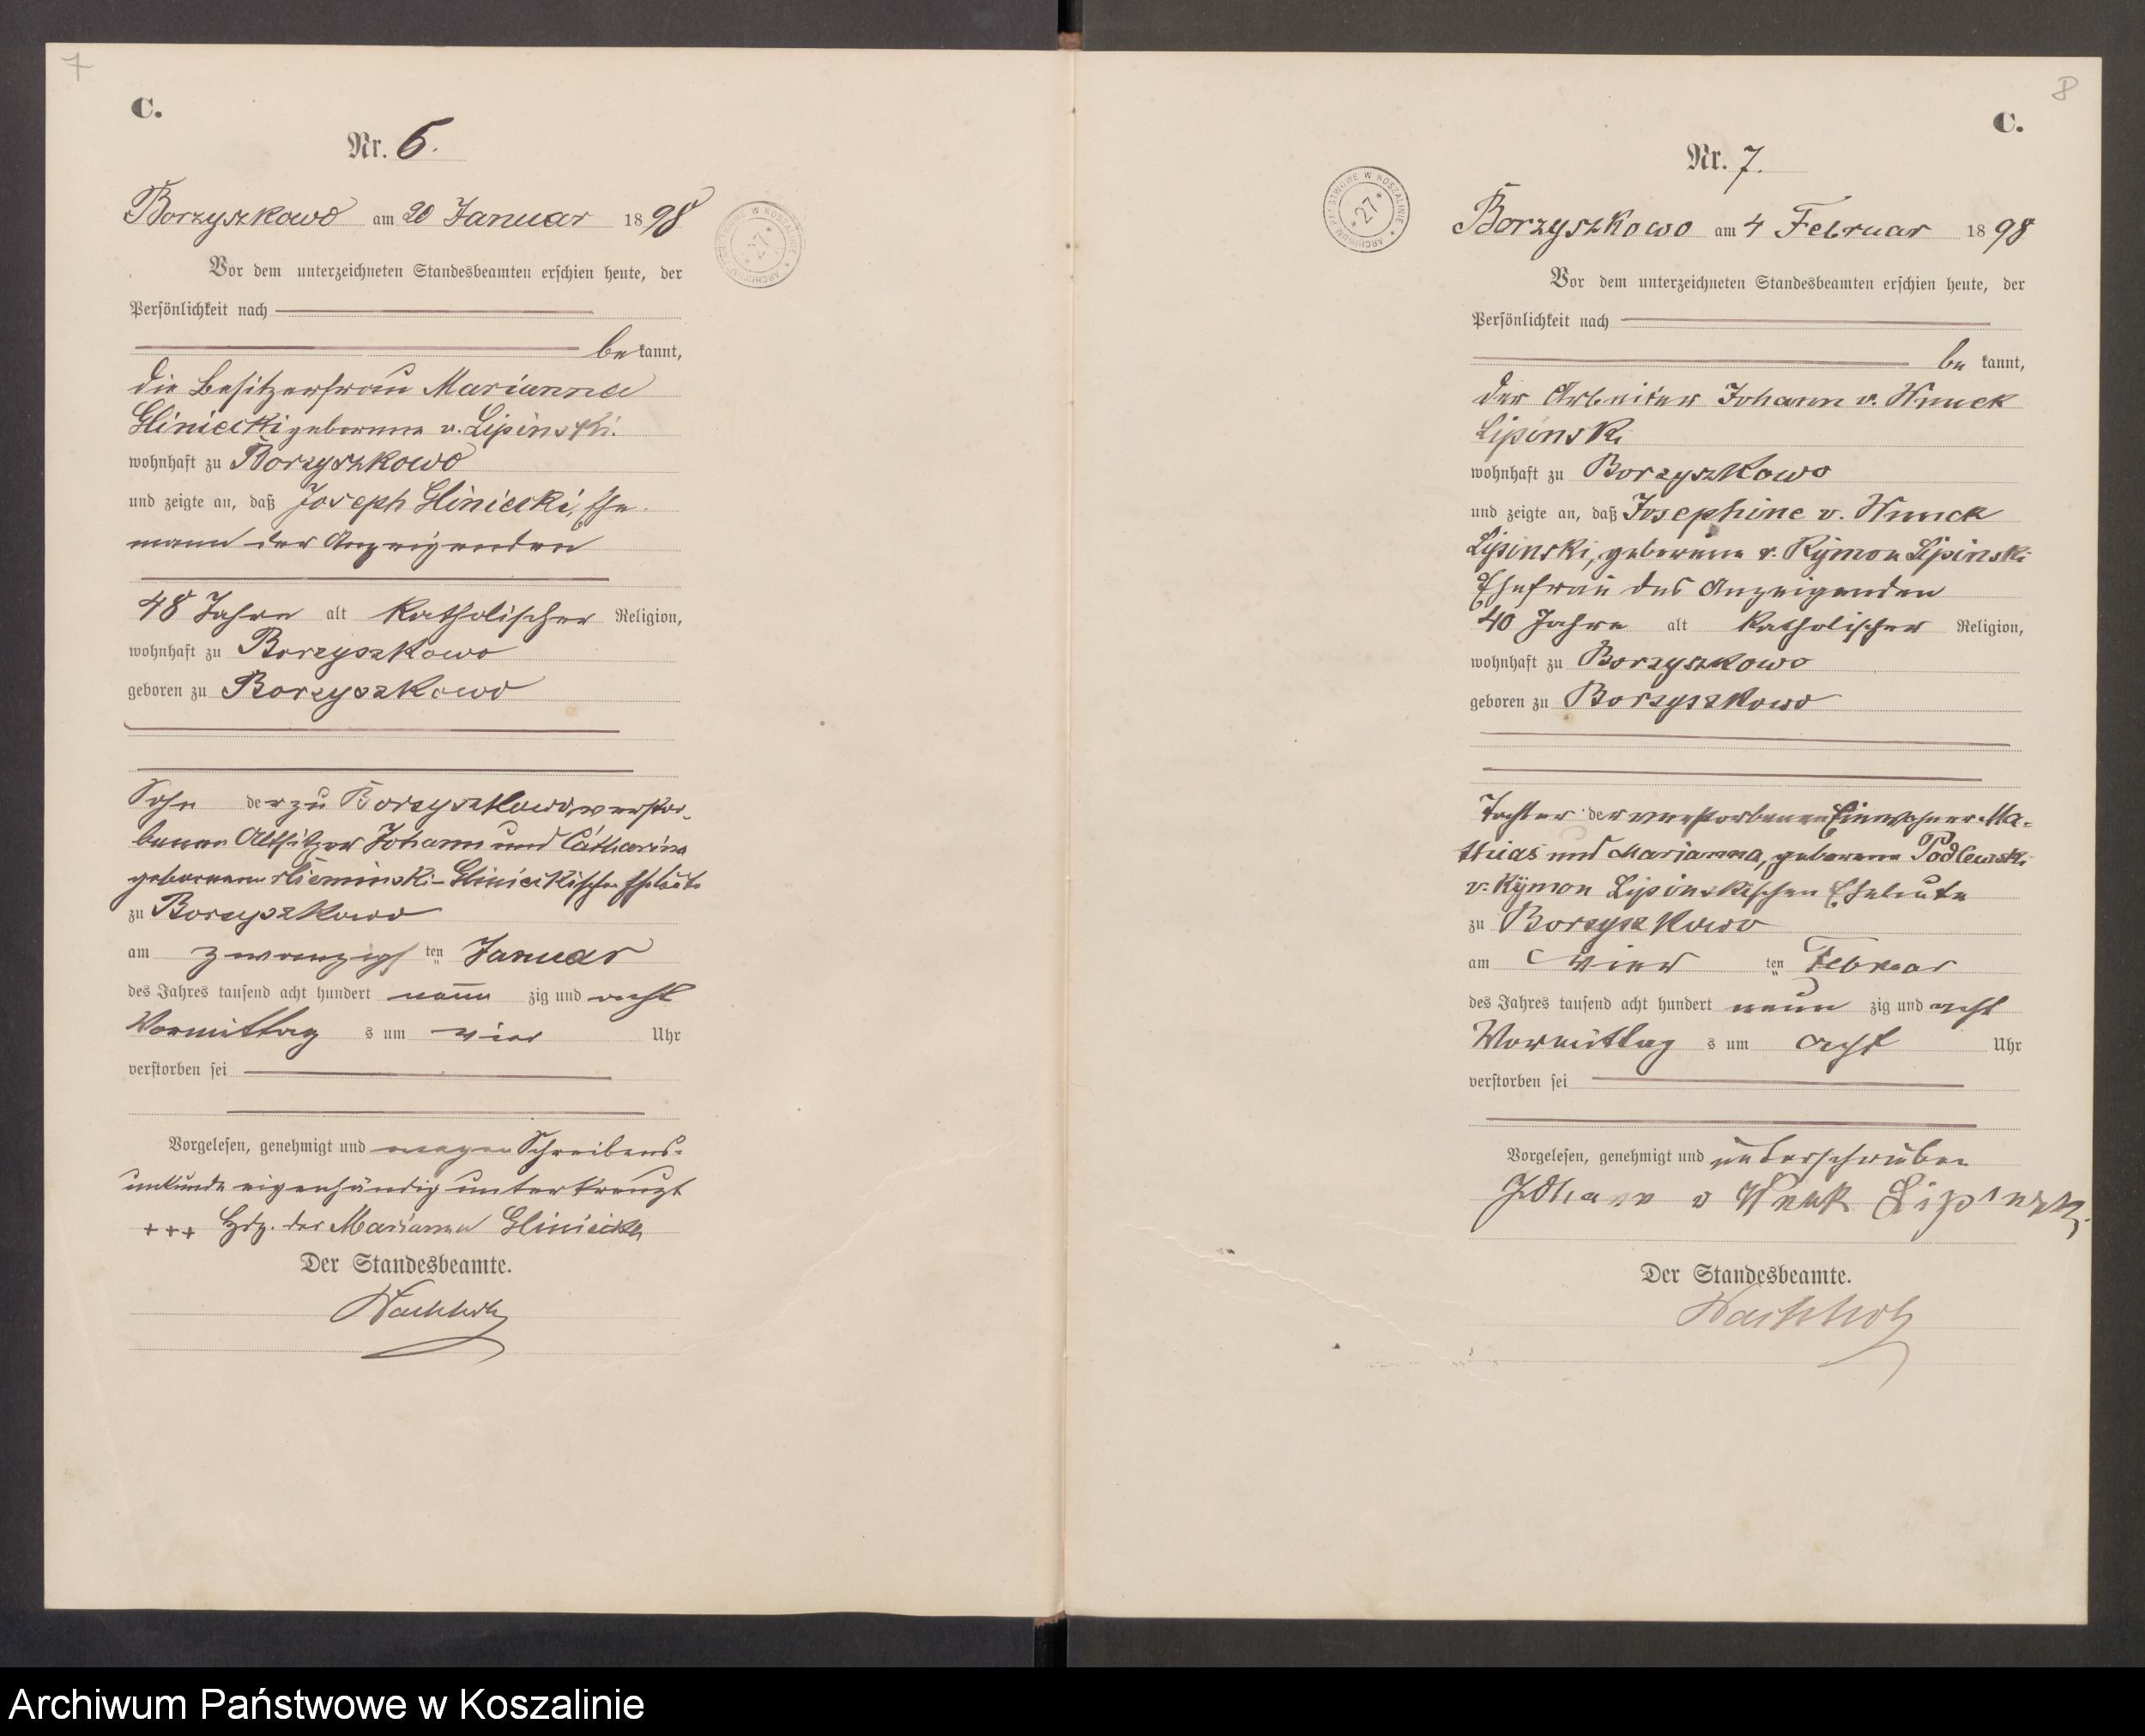 7
C.
Nr. 6.
Borzyszkowo am 20 Januar 1898
Vor dem unterzeichneten Standesbeamten erschien heute, der
Persönlichkeit nach
bekannt,
die Besitzerfrau Marianna
Gliniecki geborene v. Lipinski.
wohnhaft zu Borzyszkowo
und zeigte an, daß Joseph Gliniecki, Ehe-
mann der Anzeigenden
48 Jahre alt katholischer Religion,
wohnhaft zu Borzyszkowo
geboren zu Borzyszkowo
Sohn der zu Borzyszkowo verstor-
benen Altsitzer Johann und Catharina
geborenen Glinieckischen Eheleute
zu Borzyszkowo
am zwanzigsten Januar
des Jahres tausend acht hundert neunzig und acht
Vormittags um vier Uhr
verstorben sei
Vorgelesen, genehmigt und wegen Schreibens-
unkunde eigenhändig unterkreuzt
+++ Hdz. der Marianna Gliniecki
Der Standesbeamte.
Wachholz
ARCHIWUM PAŃSTWOWE W KOSZALINIE
27
8
C.
Nr. 7.
Borzyszkowo am 4 Februar 1898
Vor dem unterzeichneten Standesbeamten erschien heute, der
Persönlichkeit nach
bekannt,
der Arbeiter Johann v. Wnuck
Lipinski
wohnhaft zu Borzyszkowo
und zeigte an, daß Josephine v. Wnuck
Lipinski, geborene v. Rÿmon Lipinski
Ehefrau des Anzeigenden
40 Jahre alt katholischer Religion,
wohnhaft zu Borzyszkowo
geboren zu Borzyszkowo
Tochter der verstorbenen Einwohner Ma-
thias und Marianna, geborene Podlewski
v. Rÿmon Lipinskischen Eheleute
zu Borzyszkowo
am vierten Februar
des Jahres tausend acht hundert neunzig und acht
Vormittags um acht Uhr
verstorben sei
Vorgelesen, genehmigt und unterschrieben
Johann v Wnuk Lipinski
Der Standesbeamte.
Wachholz
ARCHIWUM PAŃSTWOWE W KOSZALINIE
27
Archiwum Państwowe w Koszalinie